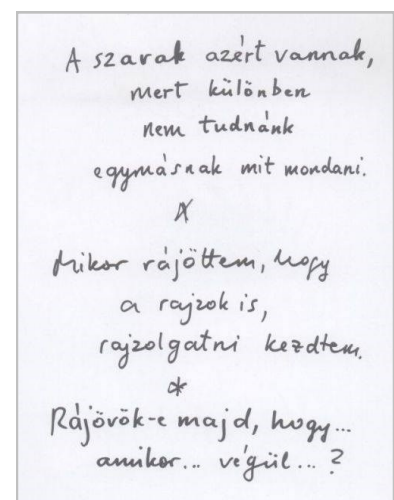 A szavak azért vannak,
mert különben
nem tudnánk
egymásnak mit mondani.
*
Mikor rájöttem, hogy
a rajzok is,
rajzolgatni kezdtem.
*
Rájövök-e majd, hogy...
amikor... végül...?